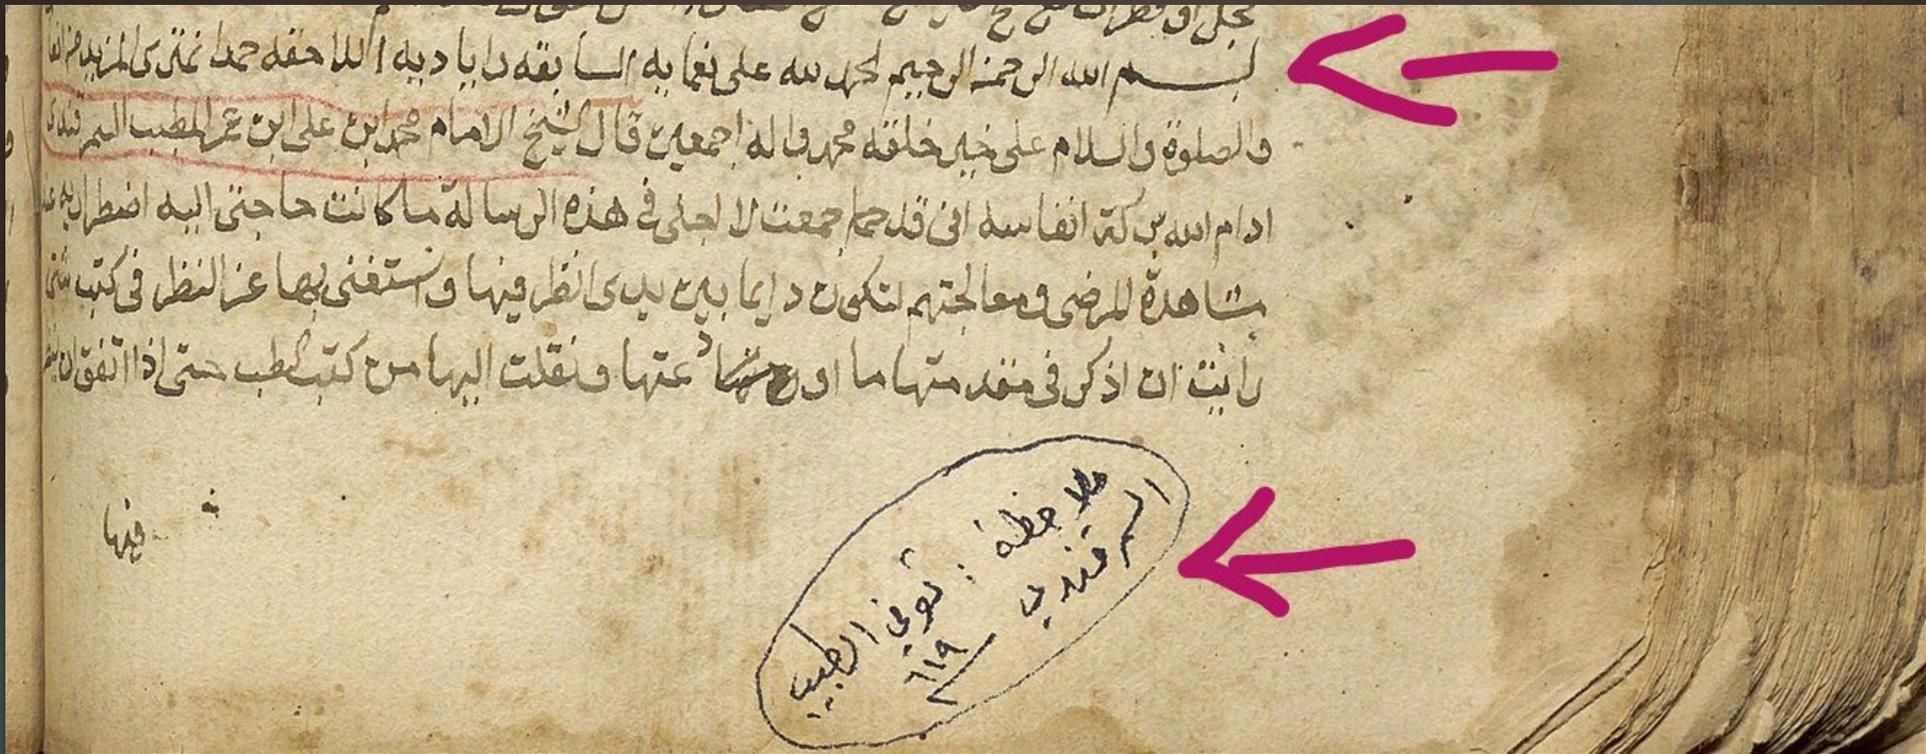 بسم الله الرحمن الرحيم الحمد لله على نعمايه السابقه واياديه اللاحقه حمدا يمترى المزيد من
والصلوة والسلام على خير خلقه محمد واله اجمعين قال الشيخ الامام محمد ابن على ابن عمر المطبب السمرقندى
ادام الله بركة انفاسه انى قد جمعت لاجلى فى هذه الرسالة ما كانت حاجتى اليه اضطراريه عند
مشاهدة المرضى ومعالجتهم لتكون دايما بين يدى انظر فيها واستغنى بها عن النظر فى كتب شتى
رايت ان اذكر فى مقدمتها ما ونقلت اليها من كتب الطب حتى اذا اتفق ان
فيها
ملاحظة : توفي الطبيب
السمرقندي ٦١٩